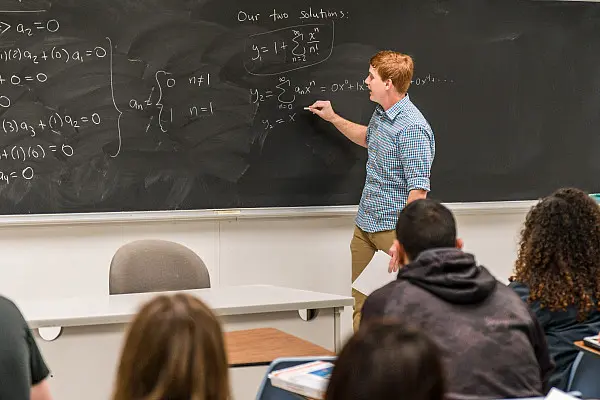 => a₂ = 0
(1)(2)a₂ + (0)a₁ = 0
+ 0 = 0
0
(3)a₃ + (1)a₂ = 0
+ (1)(0) = 0
a₃ = 0
aₙ = { 0 n≠1
1 n=1
Our two solutions:
y₁ = 1 + ∑ₙ₌₂^∞ xⁿ/n!
y₂ = ∑ₙ₌₀^∞ aₙxⁿ = 0x⁰ + 1x + 0x⁴ ...
y₂ = x